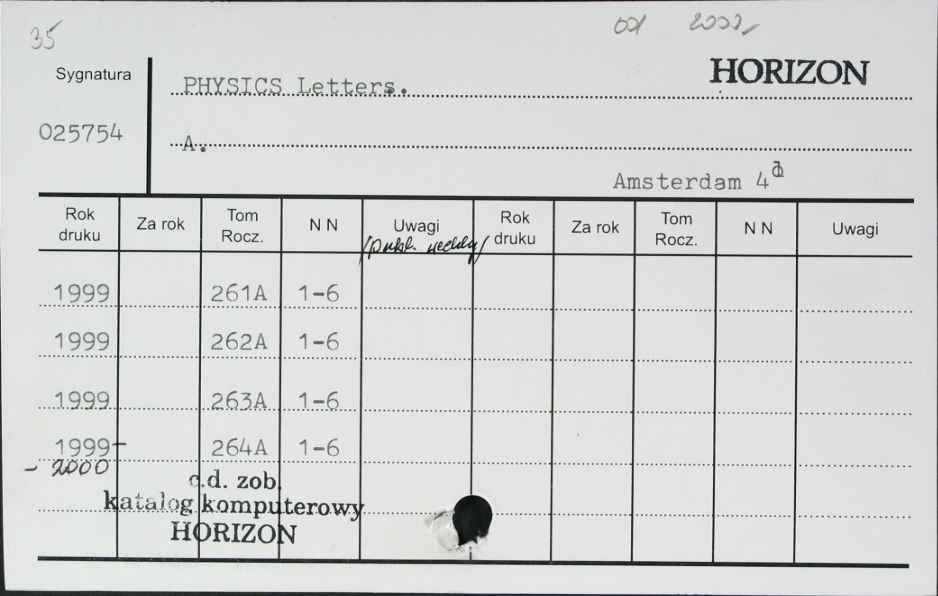 35
Sygnatura
PHYSICS Letters.
HORIZON
025754
A.
Amsterdam 4
Rok druku Za rok Tom Rocz. N N Uwagi Rok druku Za rok Tom Rocz. N N Uwagi
1999 261A 1-6
1999 262A 1-6
1999 263A 1-6
1999- 264A 1-6
- 2000
c.d. zob.
katalog komputerowy
HORIZON